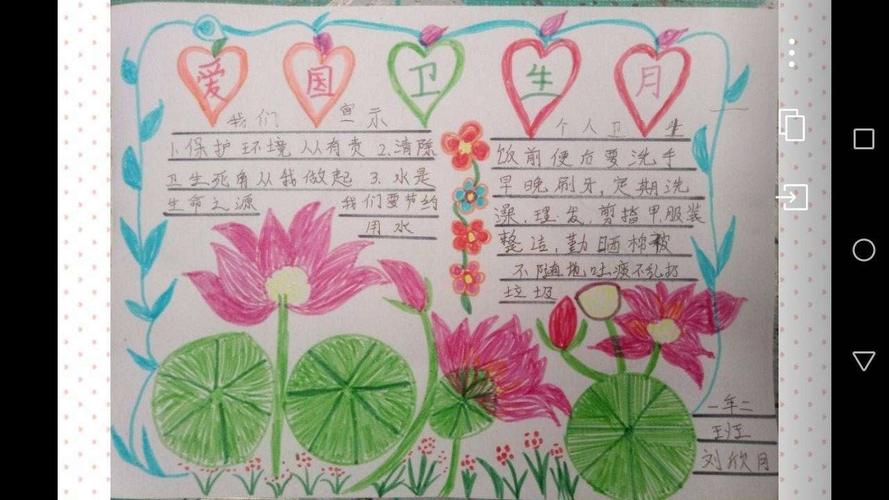 爱国卫生月
我们 宣示
1.保护环境 人人有责 2.清除
卫生死角从我做起 3. 水是
生命之源 我们要节约
用水
个人卫生
饭前便后要洗手
早晚刷牙,定期洗
澡,理发,剪指甲服装
整洁,勤晒棉被
不随地吐痰不乱扔
垃圾
一年二
班
刘欣月